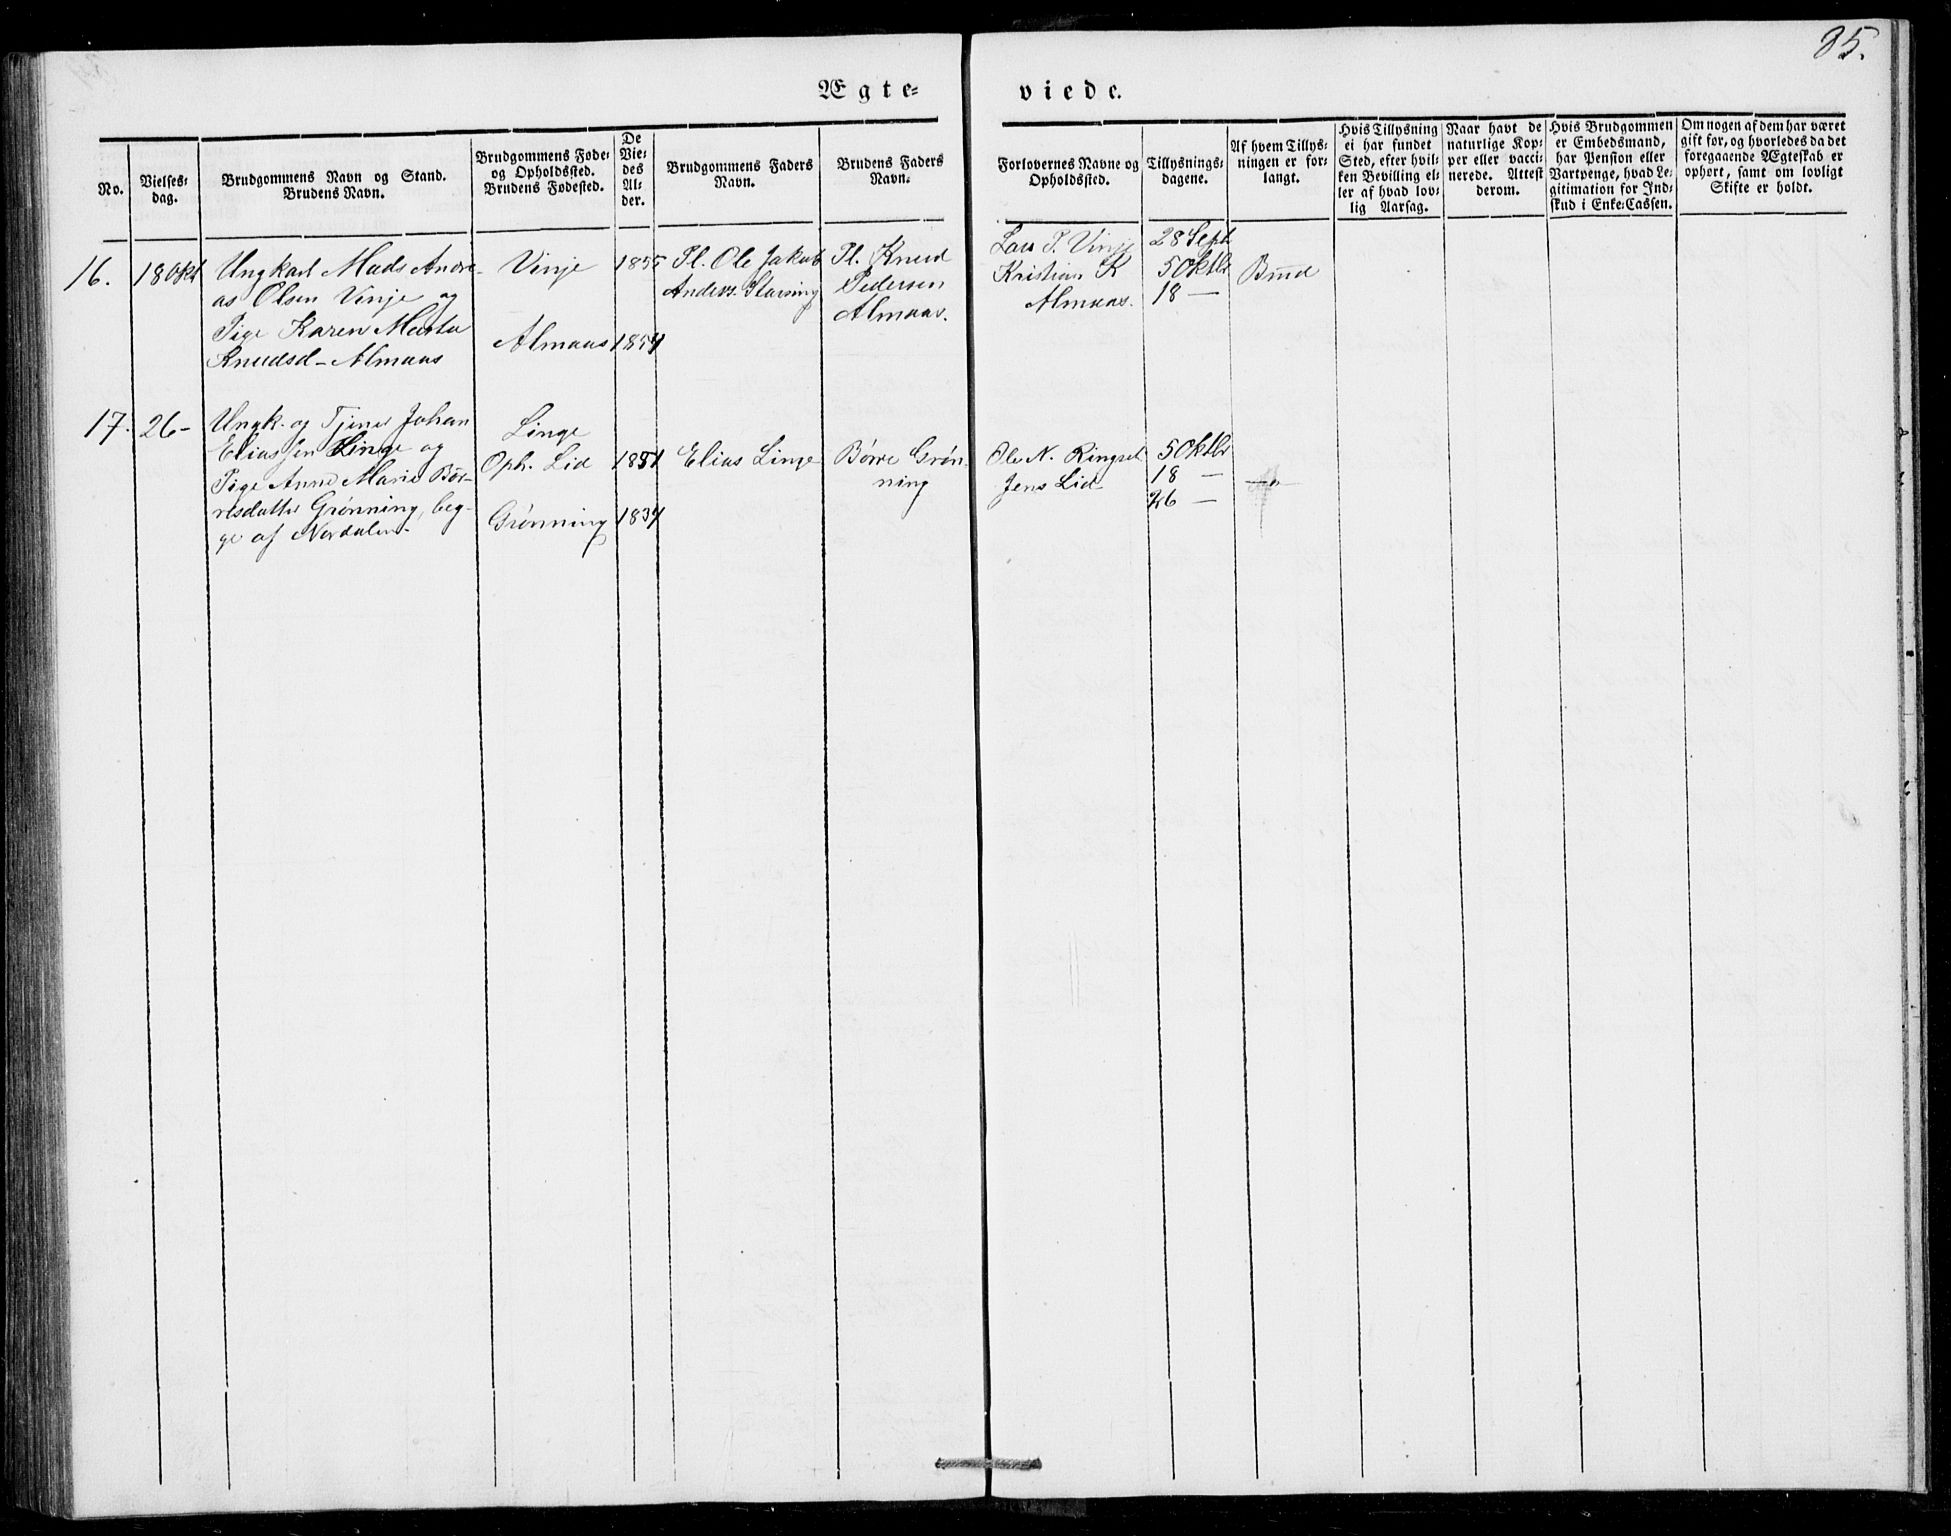 85.
Ægte=
viede.
No.
Vielses=
dag.
Brudgommens Navn og Stand.
Brudens Navn.
Brudgommens Føde=
og Opholdssted.
Brudens Fødested.
De
Vie=
des
Al=
der.
Brudgommens Faders
Navn.
Brudens Faders
Navn.
Forlovernes Navne og
Opholdssted.
Tillysnings=
dagene.
Af hvem Tillys=
ningen er for=
langt.
Hvis Tillysning
ei har fundet
Sted, efter hvil=
ken Bevilling el=
ler af hvad lov=
lig Aarsag.
Naar havt de
naturlige Kop=
per eller vacci=
nerede. Attest
derom.
Hvis Brudgommen
er Embedsmand,
har Pension eller
Vartpenge, hvad Le=
gitimation for Ind=
skud i Enke=Cassen.
Om nogen af dem har været
gift før, og hvorledes da det
foregaaende Ægteskab er
ophørt, samt om lovligt
Skifte er holdt.
16.
18 Okt
Ungkarl Mads Andre-
as Olsen Vinje og
Pige Karen Marta
Knudsd- Almaas
Vinje
Almaas
1855
1854
Pl. Ole Jakob
Anders.
Pl. Knud
Pedersen
Almaas.
Lars P. Vinje
Kristian K
Almaas.
28 Sept
5 Oktbr
18 —
Brud
17.
26-
Ungk. og Tjener Johan
Eliassen Linge og
Pige Anne Marie Bør-
resdatter Grønning, beg-
ge af Nordalen-
Linge
Oph. Lid
Grønning
1851
1837
Elias Linge
Børre Grøn-
ning
Ole N. Ringset
Jens Lid
5 Oktbr
18 —
26 —
—"—